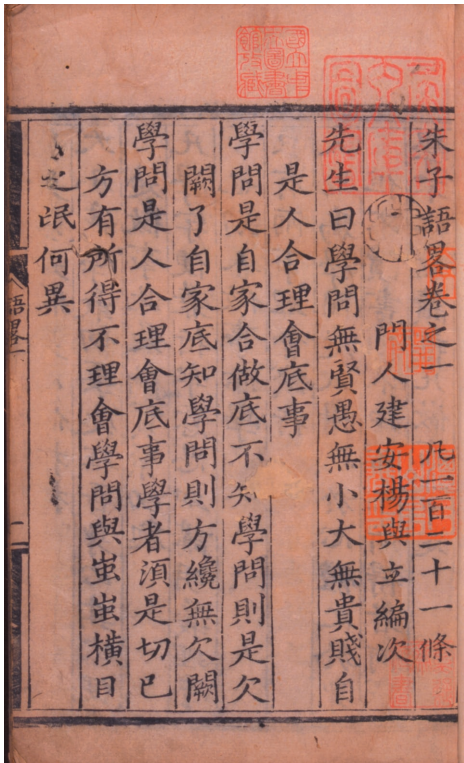 朱子語畧卷之一 凡一百二十一條
門人建安楊與立編次
先生曰學問無賢愚無小大無貴賤自
是人合理會底事
學問是自家合做底不知學問則是欠
闕了自家底知學問則方纔無欠闕
學問是人合理會底事學者須是切己
方有所得不理會學問與蚩蚩橫目
之氓何異
語畧一
國立中
央圖書
館收藏